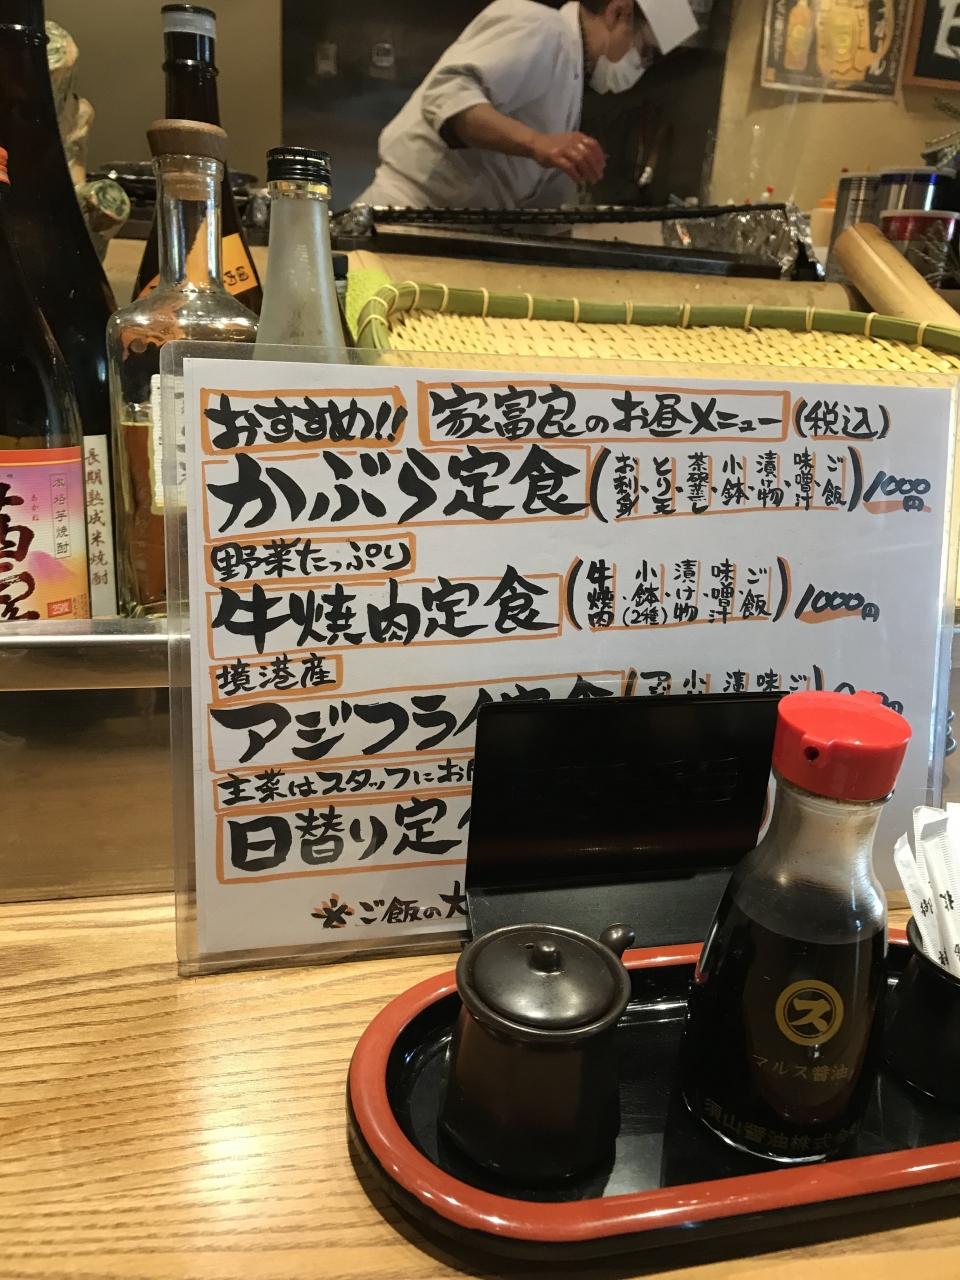 おすすめ!! 家富良のお昼メニュー (税込)
かぶら定食 (お刺身・とり天・茶碗蒸し・小鉢・漬け物・味噌汁・ご飯) 1000円
野菜たっぷり
牛焼肉定食 (牛焼肉・小鉢(2種)・漬け物・味噌汁・ご飯) 1000円
境港産
アジフライ
主菜はスタッフにお
日替り定
※ご飯の大
本格芋焼酎
あかね
25度
長期熟成米焼酎
ス
マルス醤油